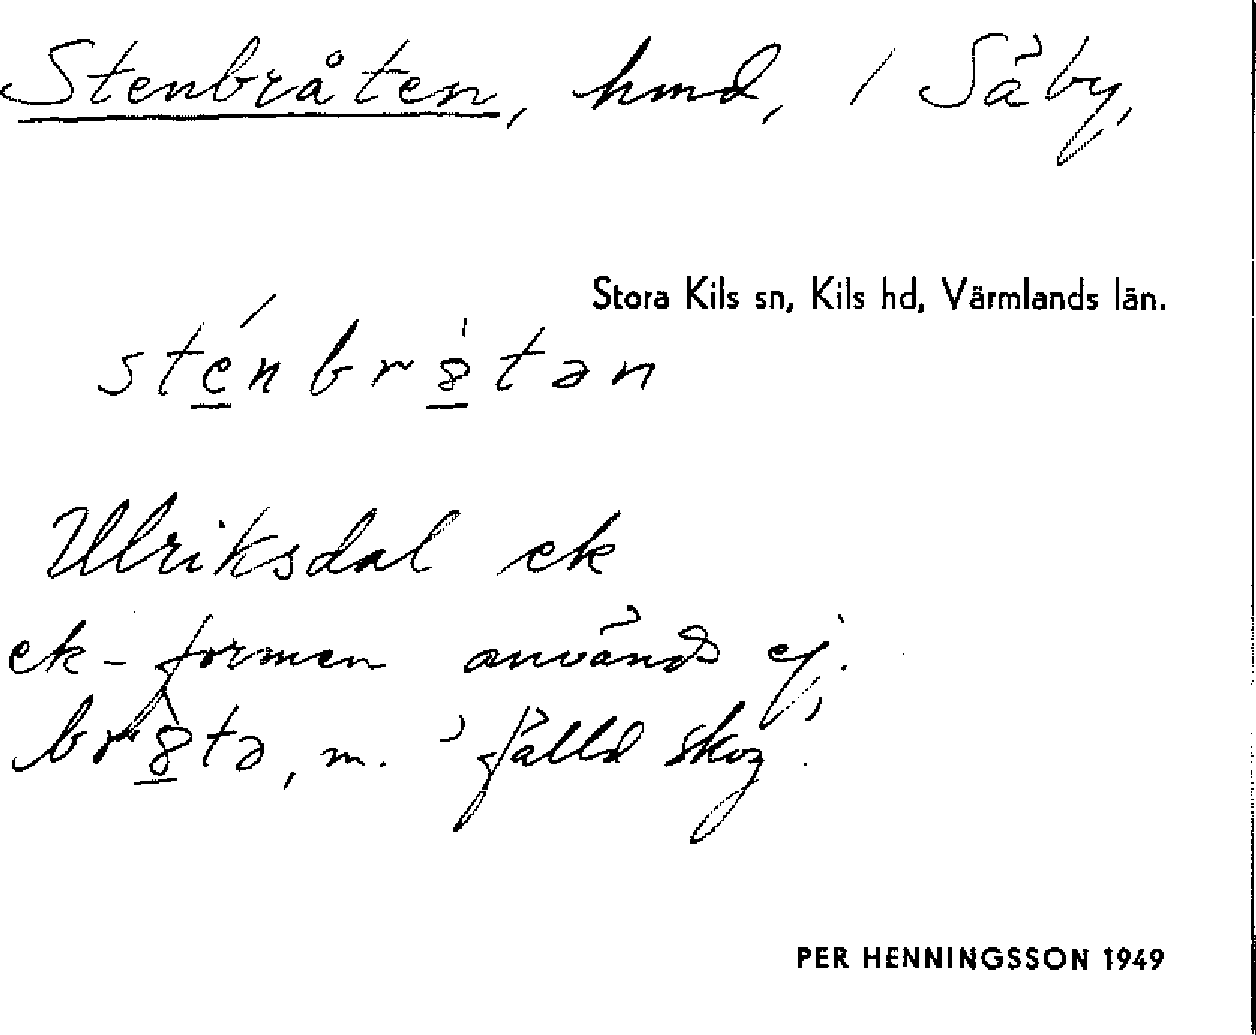 Stenbråten, hmd, / Säby,
Stora Kils sn, Kils hd, Värmlands län.
sténbr8̀tən
Ulriksdal ek
ek-formen används ej.
br8̀tə, m. ʼfälld skogʼ.
PER HENNINGSSON 1949